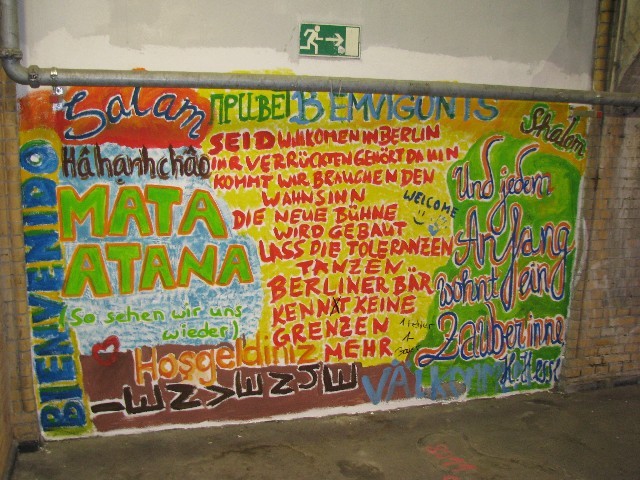 Salam
ПРИВЕТ
BEMVIGUNTS
Shalom
BIENVENIDO
Hâhạnhchâo
MATA
ATANA
(So sehen wir uns
wieder)
SEID WILLKOMEN IN BERLIN
IHR VERRÜCKTEN GEHÖRT DA HIN
KOMMT WIR BRAUCHEN DEN
WAHNSINN
DIE NEUE BÜHNE
WIRD GEBAUT
LASS DIE TOLERANZEN
TANZEN
BERLINER BÄR
KENNT KEINE
GRENZEN
MEHR
WELCOME
Und jedem
Anfang
wohnt ein
Zauber inne
H. Hesse
Hoşgeldiniz
VÄLKOM